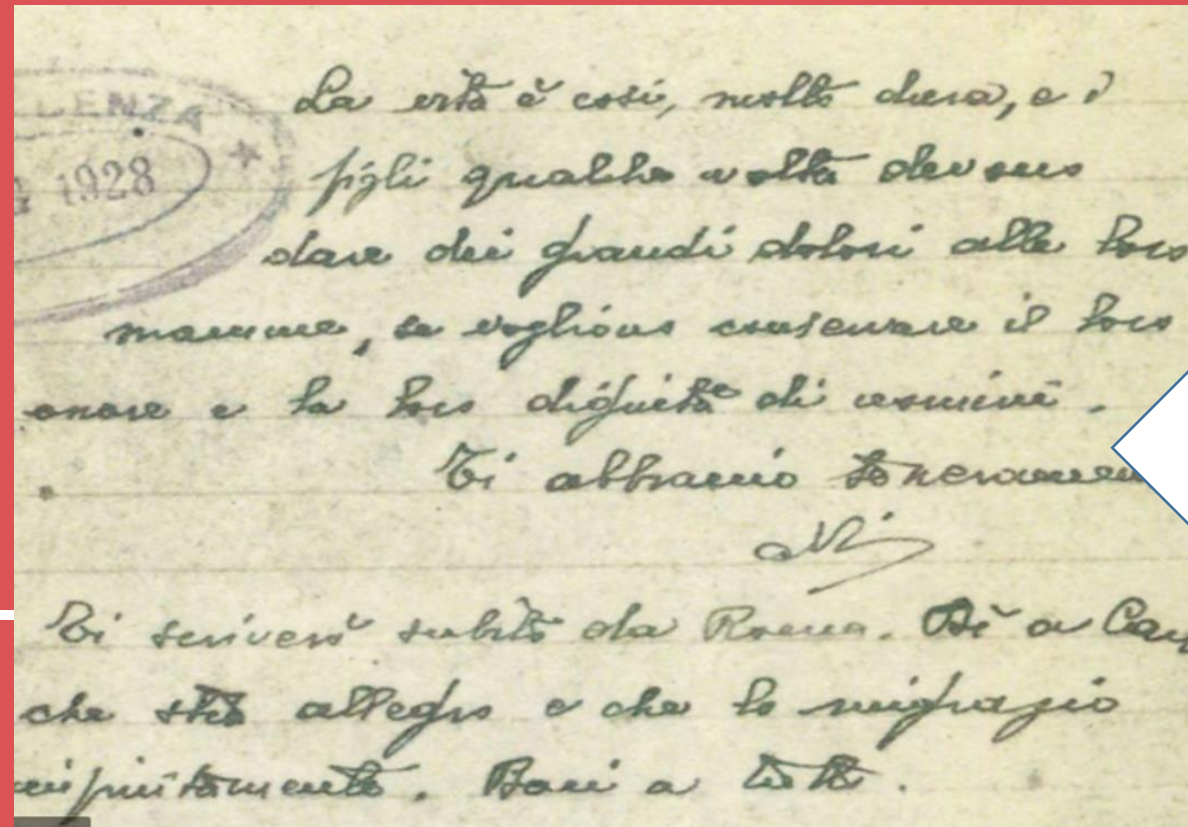 DENZA
1928
La vita è così, molto dura, e i
figli qualche volta devono
dare dei grandi dolori alle loro
mamme, se vogliono conservare il loro
onore e la loro dignità di uomini.
Ti abbraccio teneramen
Ti scriverò subito da Roma. Dì a Car
che stia allegro e che lo ringrazio
infinitamente. Baci a tutti.